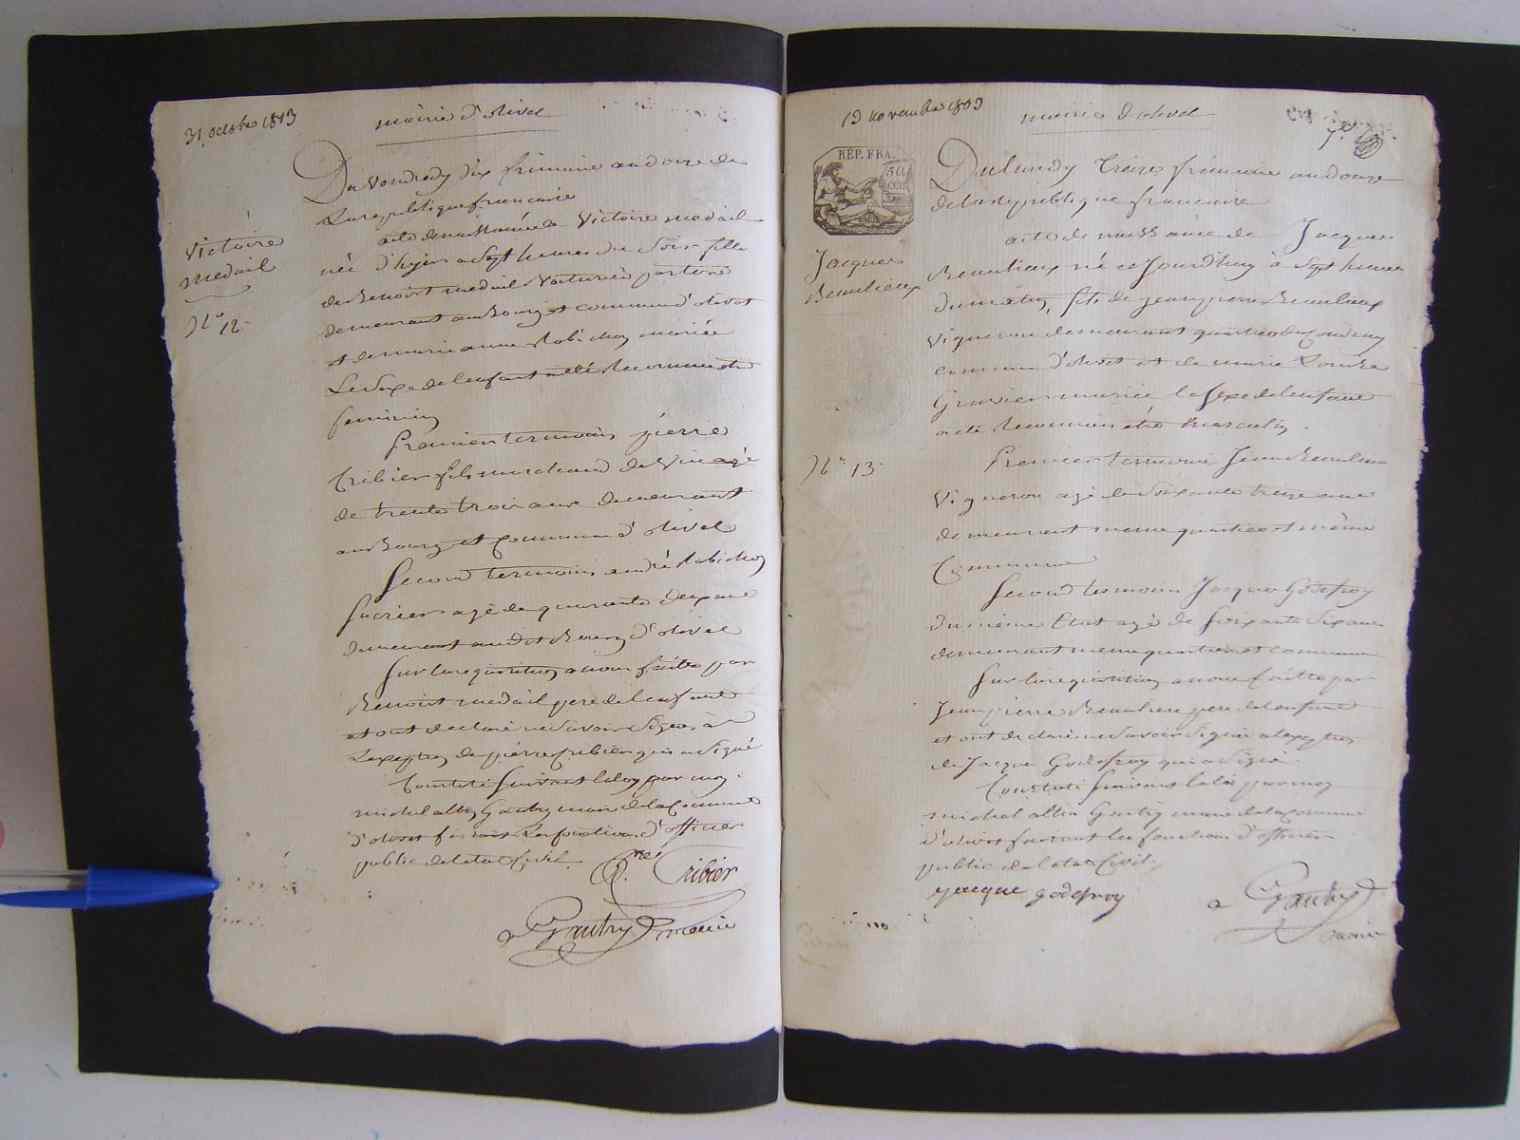 31 octobre 1813
mairie d'olivet
Du Vendredy dix frimaire an douze de
La republique francaise
acte de naissance de Victoire medail
née d'hyier a Sept heures du Soir fille
de Benoist medail Voiturier par terre
demeurant au Bourg et commune d'olivet
et de marie anne Robichon mariée
Le Sexe de lenfant a été Reconnu etre
feminin
Victoire
medail
No 12
Premier termoin pierre
Cribier fils marchand de Vin agé
de trente trois ans demeurant
au Bourg et Commune d'olivet
Second termoin andré Robichon
agé de quarante deux ans
demeurant au dit Bourg d'olivet
Sur la requisition a nous faitte par
Benoist medail pere de lenfant
et ont declaré ne Savoir Signer à
Lexeption de pierre Cribier qui a Signé
Constaté Suivant la loy par moy
michel albin Gautry maire de la Commune
d'olivet faisant Les fonctions d'officier
public de letat Civil
Cribier
a Gautry maire
13 novembre 1803
mairie d'olivet
RÉP. FRA.
50
Du lundy Treize frimaire an douze
de la republique francaise
acte de naissance de Jacques
Beaulieux né ce Jourdhuy à Sept heures
du matin, fils de jean pierre Beaulieux
Vigneron demeurant quartier du
commune d'olivet et de marie Louise
Gravier mariée le Sexe de lenfant
a été Reconnu etre masculin.
Jacques
Beaulieux
No 13
Premier termoin Jean Beaulieux
Vigneron agé de Soixante treize ans
demeurant meme quartier et même
Commune
Second termoin Jacque Godefroy
du même Etat agé de Soixante Six ans
demeurant meme quartier et commune
Sur la requisition a nous faitte par
Jean pierre Beaulieux pere de lenfant
et ont declaré ne Savoir Signer a lexeption
de Jacque Godefroy qui a Signé
Constaté Suivant la loi par moy
michel albin Gautry maire de la Commune
d'olivet faisant les fonctions d'officier
public de letat Civil
Jacque godefroy
a Gautry
maire